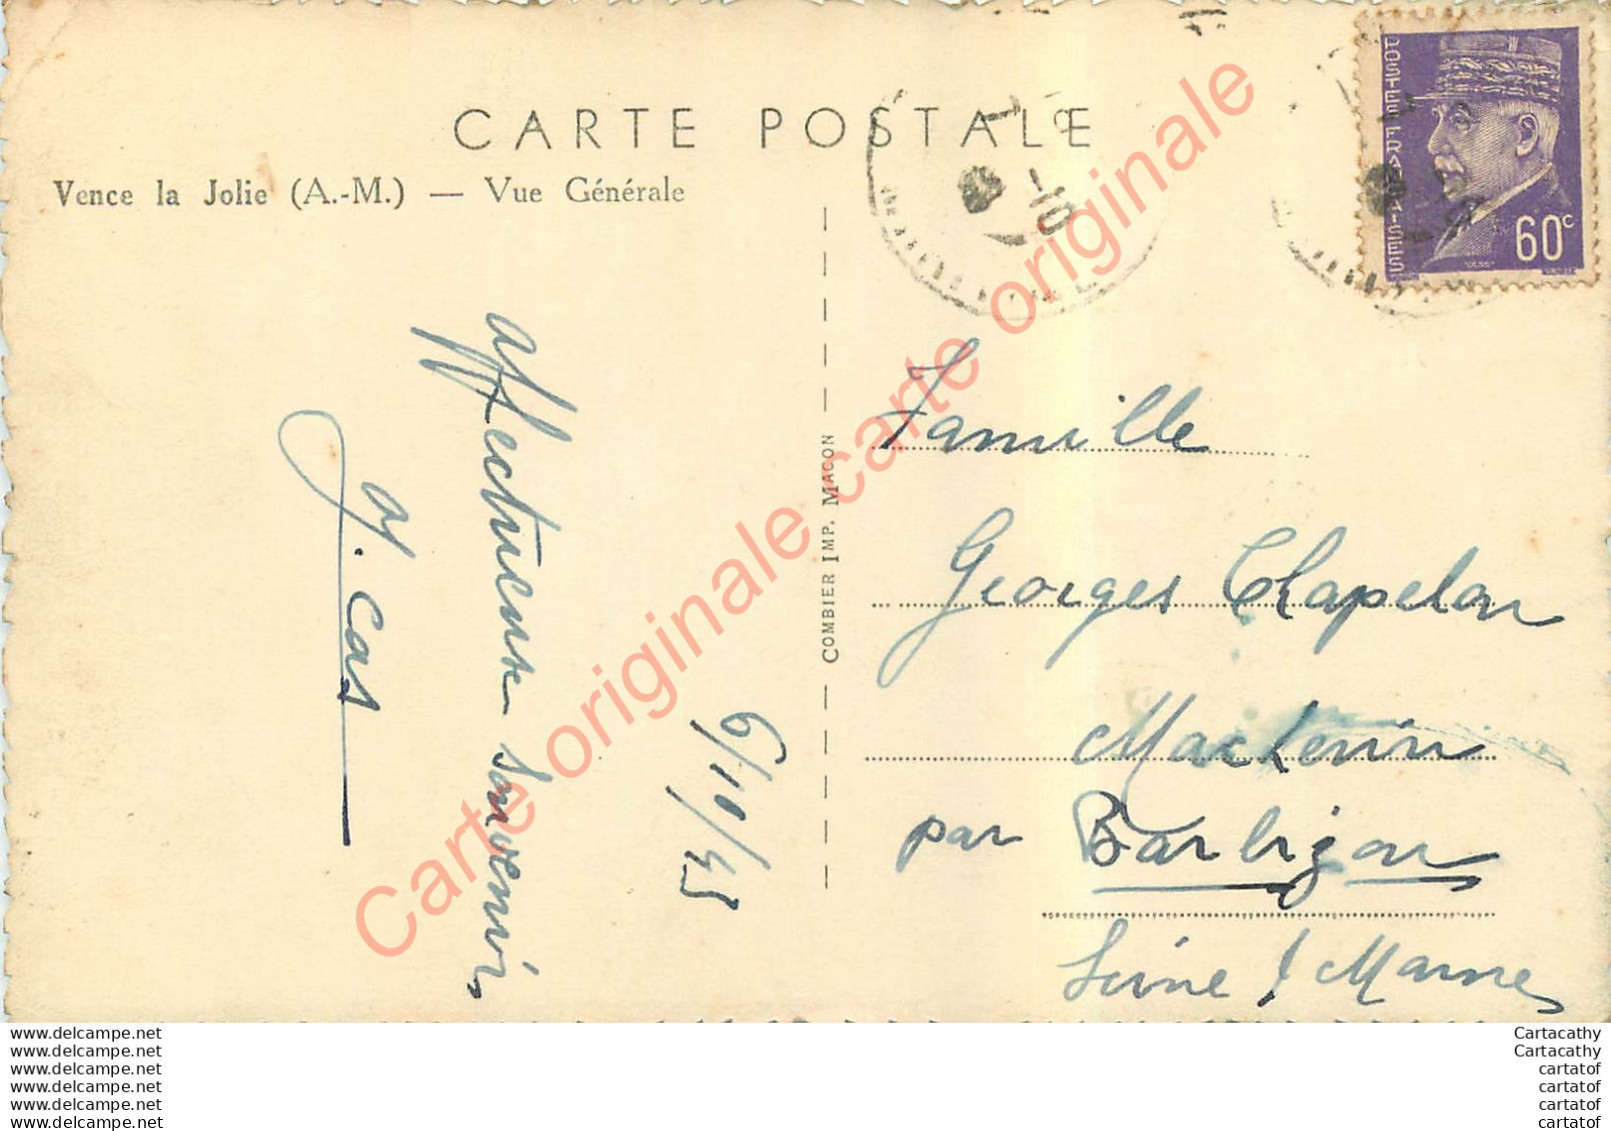 CARTE POSTALE
Vence la Jolie (A.-M.) — Vue Générale
POSTES FRANÇAISES
60c
7
-10
COMBIER IMP. MACON
6/10/43
affectueux souvenir
Y. Cas
Famille
Georges Chapelon
Macherin
par Barbizon
Seine / Marne
Carte originale carte originale
www.delcampe.net
www.delcampe.net
www.delcampe.net
www.delcampe.net
www.delcampe.net
www.delcampe.net
Cartacathy
Cartacathy
cartatof
cartatof
cartatof
cartatof